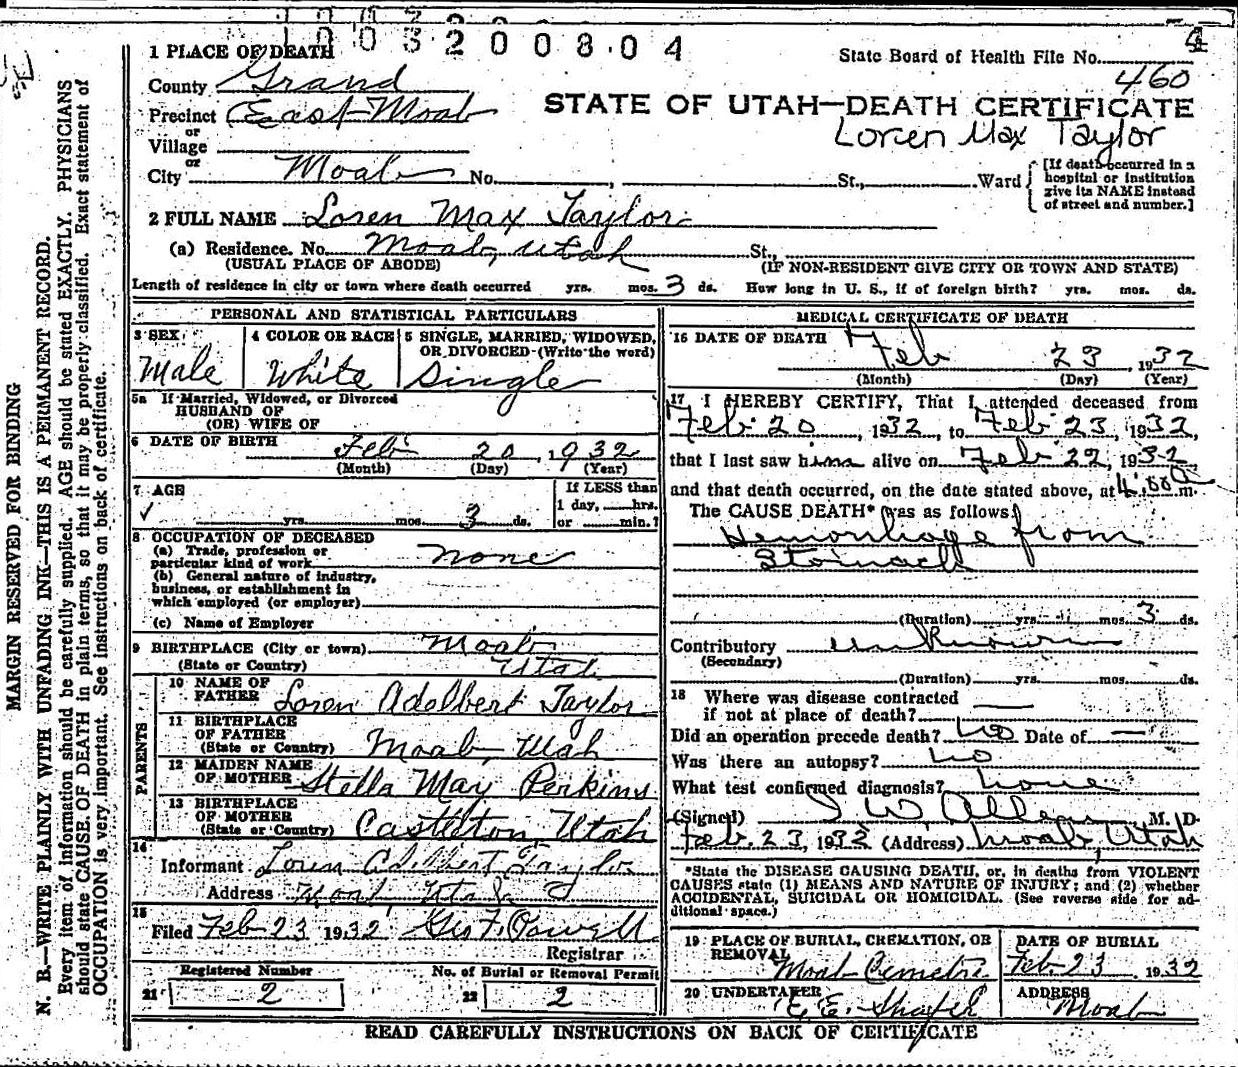 1003200804
4
1 PLACE OF DEATH
State Board of Health File No.
460
County Grand
Precinct East Moab
STATE OF UTAH—DEATH CERTIFICATE
or
Loren Max Taylor
Village
or
City Moab No. , St., Ward
[If death occurred in a
hospital or institution
give its NAME instead
of street and number.]
2 FULL NAME Loren Max Taylor
(a) Residence. No. Moab, Utah St.,
(USUAL PLACE OF ABODE) (IF NON-RESIDENT GIVE CITY OR TOWN AND STATE)
Length of residence in city or town where death occurred yrs. mos. 3 ds. How long in U. S., if of foreign birth? yrs. mos. ds.
PERSONAL AND STATISTICAL PARTICULARS
3 SEX
Male
4 COLOR OR RACE
White
5 SINGLE, MARRIED, WIDOWED,
OR DIVORCED (Write the word)
Single
5a If Married, Widowed, or Divorced
HUSBAND OF
(OR) WIFE OF
6 DATE OF BIRTH Feb 20, 1932
(Month) (Day) (Year)
7 AGE
yrs. mos. 3 ds.
If LESS than
1 day, hrs.
or min.?
8 OCCUPATION OF DECEASED
(a) Trade, profession or
particular kind of work none
(b) General nature of industry,
business, or establishment in
which employed (or employer)
(c) Name of Employer
9 BIRTHPLACE (City or town) Moab
(State or Country) Utah
PARENTS
10 NAME OF
FATHER Loren Adelbert Taylor
11 BIRTHPLACE
OF FATHER
(State or Country) Moab, Utah
12 MAIDEN NAME
OF MOTHER Stella May Perkins
13 BIRTHPLACE
OF MOTHER
(State or Country) Castleton, Utah
14
Informant Loren Adelbert Taylor
Address Moab Utah
15
Filed Feb 23 1932 Geo F. Powell
Registrar
Registered Number
21 2
No. of Burial or Removal Permit
22 2
MEDICAL CERTIFICATE OF DEATH
16 DATE OF DEATH Feb 23, 1932
(Month) (Day) (Year)
17 I HEREBY CERTIFY, That I attended deceased from
Feb 20, 1932, to Feb 23, 1932,
that I last saw him alive on Feb 22, 1932
and that death occurred, on the date stated above, at 4:00 a m.
The CAUSE DEATH* was as follows
Hemorrhage from
Stomach
(Duration) yrs. mos. 3 ds.
Contributory unknown
(Secondary)
(Duration) yrs. mos. ds.
18 Where was disease contracted
if not at place of death?
Did an operation precede death? no Date of —
Was there an autopsy? no
What test confirmed diagnosis? none
(Signed) I W. Allen, M. D.
Feb. 23, 1932 (Address) Moab, Utah
*State the DISEASE CAUSING DEATH, or, in deaths from VIOLENT
CAUSES state (1) MEANS AND NATURE OF INJURY; and (2) whether
ACCIDENTAL, SUICIDAL OR HOMICIDAL. (See reverse side for ad-
ditional space.)
19 PLACE OF BURIAL, CREMATION, OR
REMOVAL
Moab
DATE OF BURIAL
Feb. 23, 1932
20 UNDERTAKER
E. E. Shafer
ADDRESS
Moab
READ CAREFULLY INSTRUCTIONS ON BACK OF CERTIFICATE
MARGIN RESERVED FOR BINDING
N. B.—WRITE PLAINLY WITH UNFADING INK—THIS IS A PERMANENT RECORD.
Every item of information should be carefully supplied. AGE should be stated EXACTLY. PHYSICIANS
should state CAUSE OF DEATH in plain terms, so that it may be properly classified. Exact statement of
OCCUPATION is very important. See instructions on back of certificate.